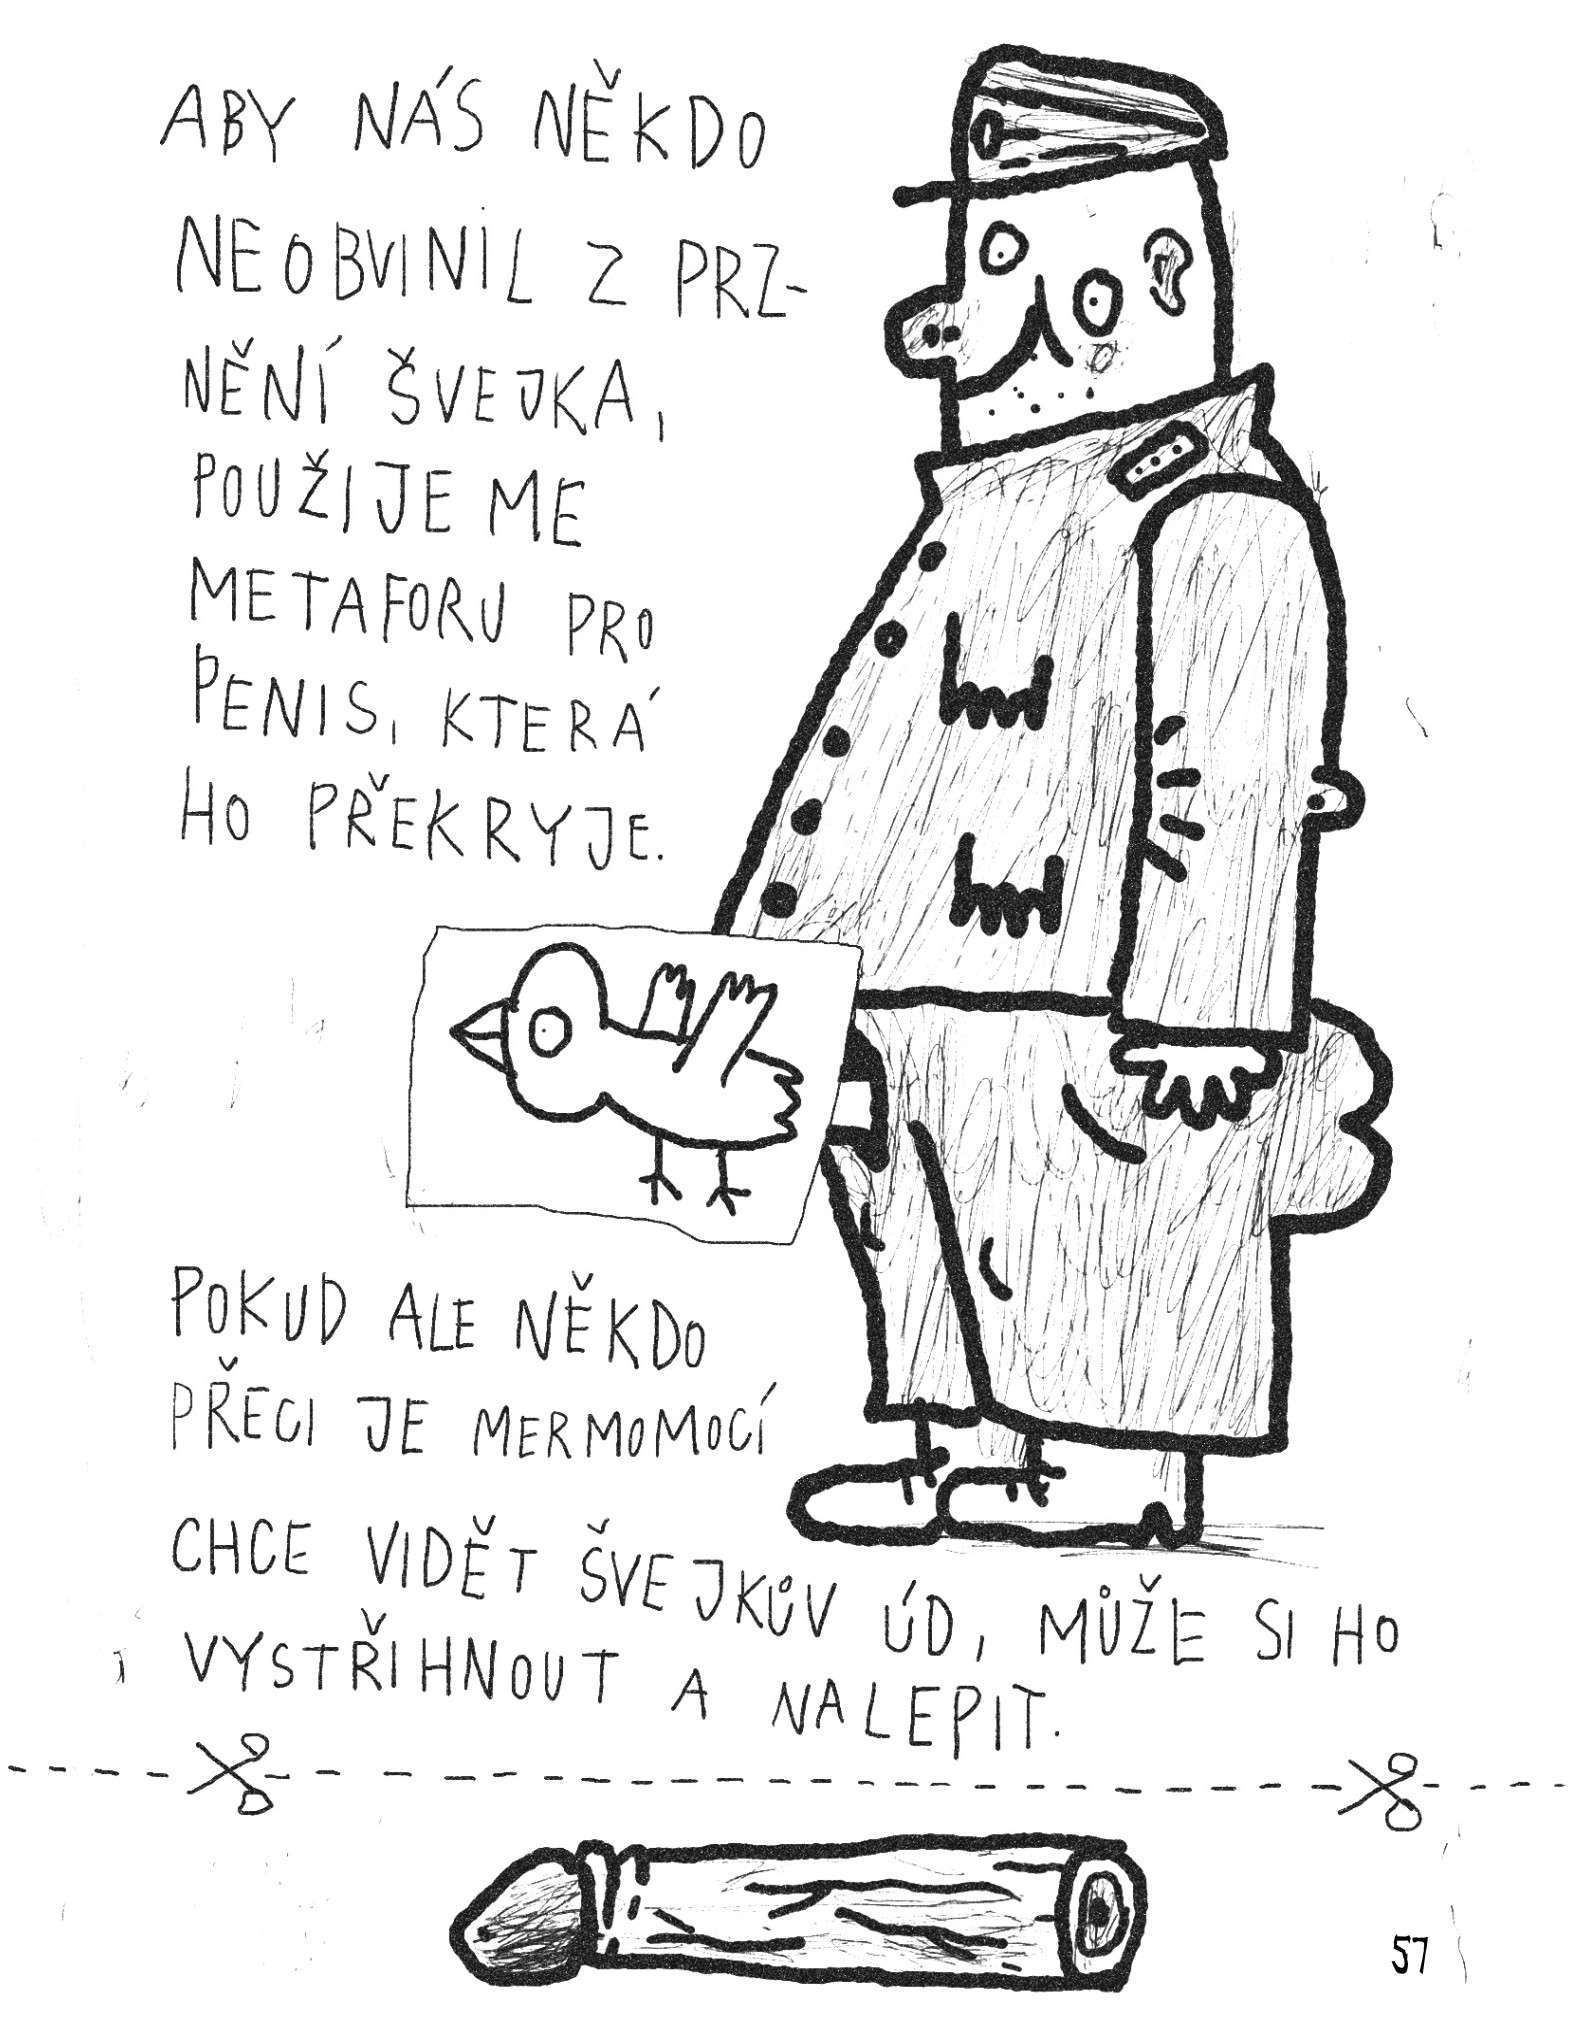 ABY NÁS NĚKDO
NEOBVINIL Z PRZ-
NĚNÍ ŠVEJKA,
POUŽIJEME
METAFORU PRO
PENIS, KTERÁ
HO PŘEKRYJE.
POKUD ALE NĚKDO
PŘECI JE MERMOMOCÍ
CHCE VIDĚT ŠVEJKŮV ÚD, MŮŽE SI HO
VYSTŘIHNOUT A NALEPIT.
57